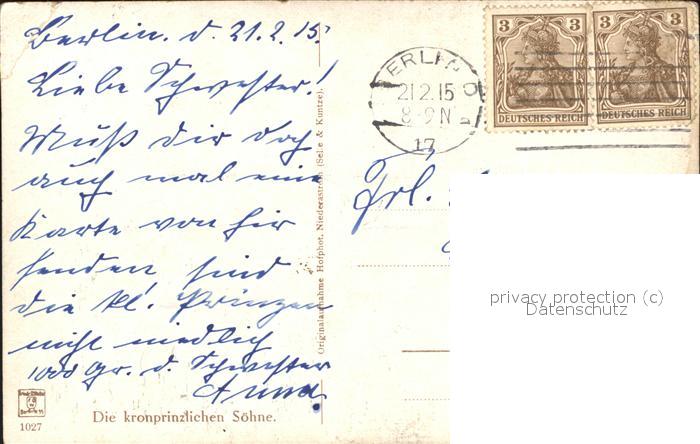 Berlin. d. 21.2.15.
Liebe Schwester!
Muß dir doch
auch mal eine
Karte von hir
senden sind
die kl. Prinzen
nicht niedlich
1000 Gr. d. Schwester
Anna.
Die kronprinzlichen Söhne.
1027
Originalaufnahme Hofphot. Niederastroth (Selle & Kuntze).
BERLIN O
21.2.15
8-9N
17
3 3
DEUTSCHES REICH
3 3
DEUTSCHES REICH
Frl.
privacy protection (c)
Datenschutz